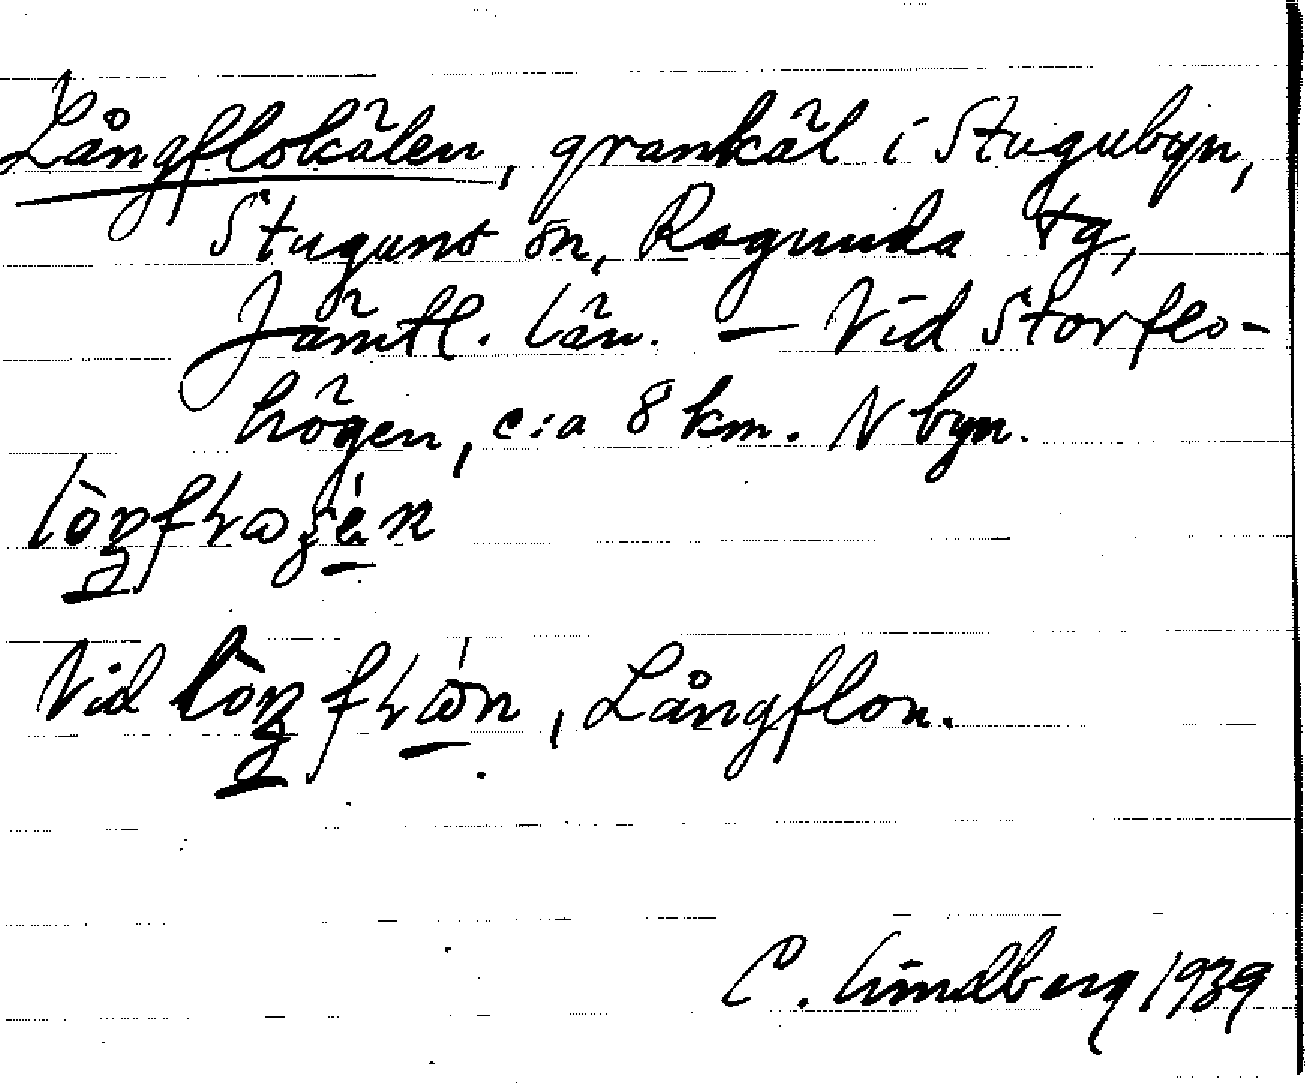 Långflokälen, grankäl i Stugubyn,
Stuguns sn, Ragunda tg,
Jämtl. län. — Vid Storflo-
högen, c:a 8 km. N byn.
Vid
, Långflon.
C. Lindberg 1939